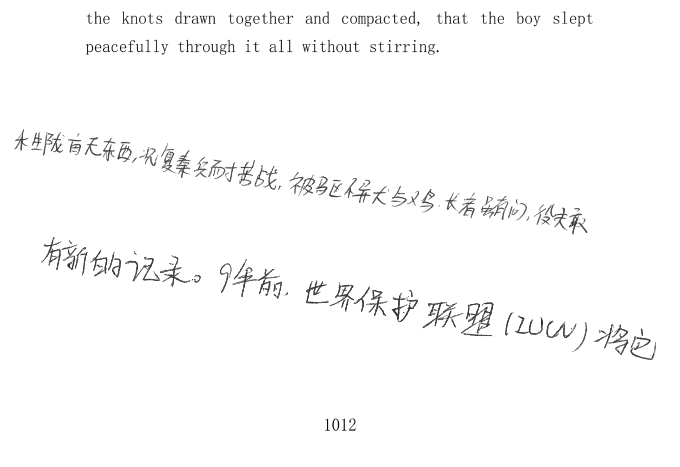 the knots drawn together and compacted, that the boy slept
peacefully through it all without stirring.
禾生陇亩无东西,况复秦兵耐苦战,被驱不异犬与鸡.长者虽有问,役夫敢
有新的记录。9年前,世界保护联盟(IUCN)将它
1012